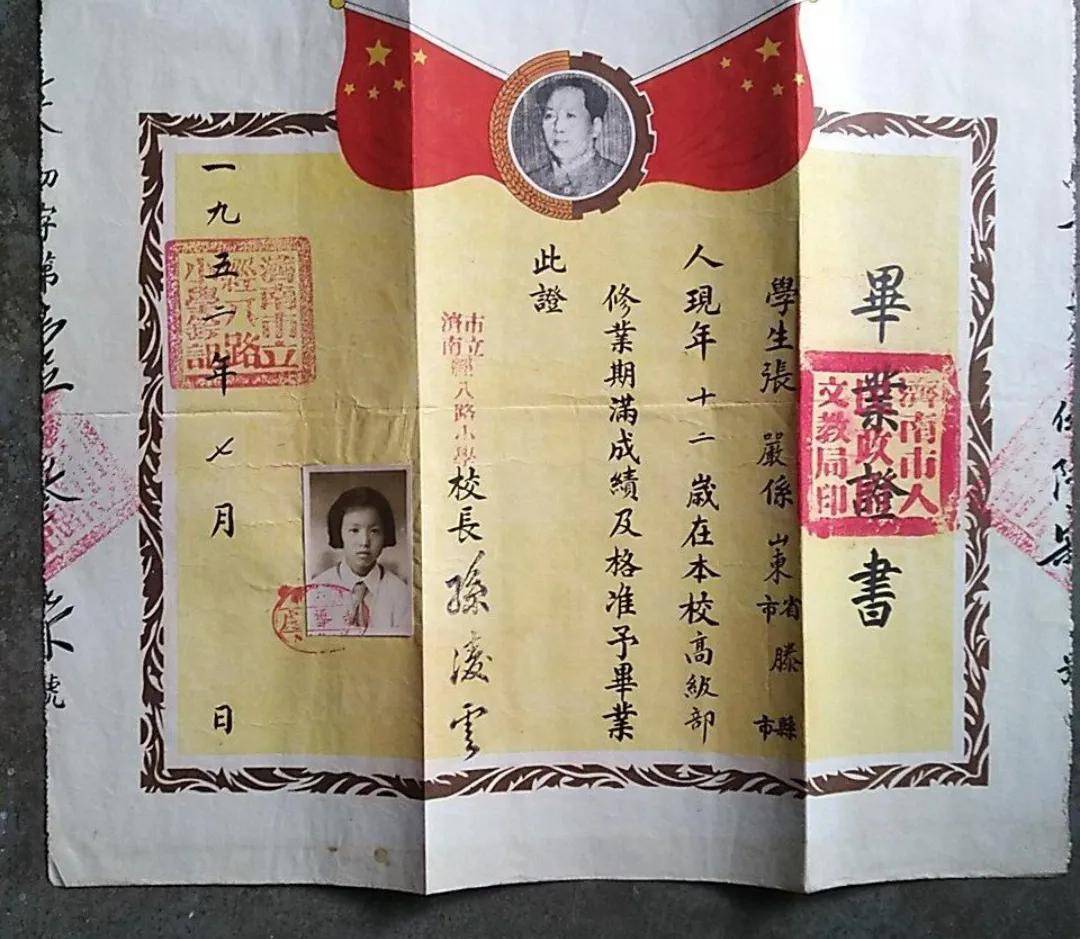 畢業證書
濟南市人
政
文教局印
學生張嚴係山東省市滕縣市
人現年十二歲在本校高級部
修業期滿成績及格准予畢業
此證
濟南市立經八路小學校長孫凌雲
一九五二年七月日
濟南市立
經八路
小學鈐記
初字第
號